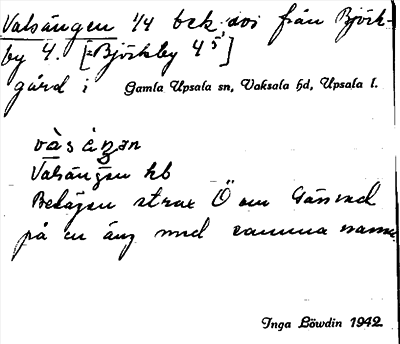 Valsängen 1/4 bek, avs från Björk-
by 4. [=Björkby 4⁵]
gård i Gamla Upsala sn, Vaksala hd, Upsala l.
Valsängen hb
Belägen strax Ö om Gåsvad
på en äng med samma namn.
Inga Löwdin 1942.